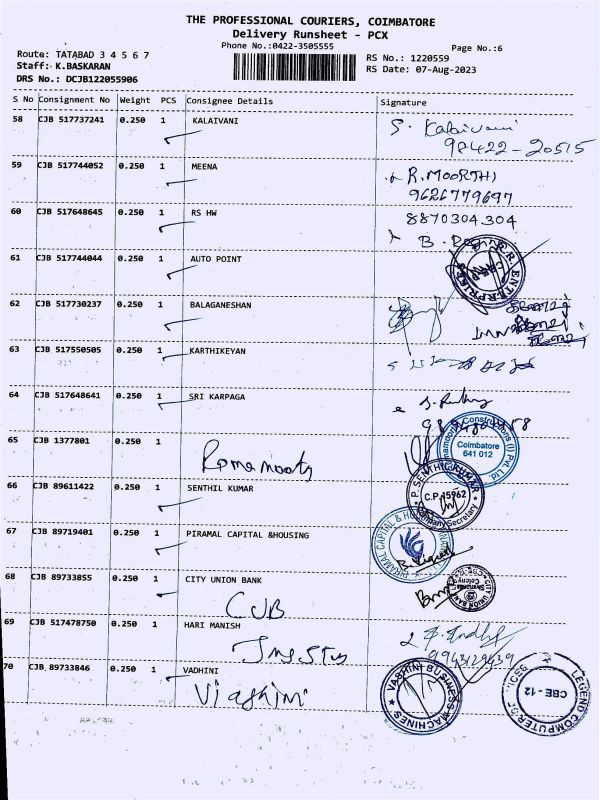 THE PROFESSIONAL COURIERS, COIMBATORE
Delivery Runsheet - PCX
Phone No.:0422-3505555
Page No.:6
Route: TATABAD 3 4 5 6 7
Staff: K.BASKARAN
DRS No.: DCJB122055906
RS No.: 1220559
RS Date: 07-Aug-2023
S No Consignment No Weight PCS Consignee Details Signature
58 CJB 517737241 0.250 1 KALAIVANI
S. Kalaivani
98422-20515
59 CJB 517744052 0.250 1 MEENA
R.MOORTHI
9626779697
60 CJB 517648645 0.250 1 RS HW
8870304304
B.
61 CJB 517744044 0.250 1 AUTO POINT
R. ENTERPRISES
62 CJB 517730237 0.250 1 BALAGANESHAN
63 CJB 517550505 0.250 1 KARTHIKEYAN
64 CJB 517648641 0.250 1 SRI KARPAGA
65 CJB 1377801 0.250 1
Constructions (I) Pvt. Ltd
Coimbatore
641 012
66 CJB 89611422 0.250 1 SENTHIL KUMAR
P. SENTHIL KUMAR
C.P.15962
Company Secretary
67 CJB 89719401 0.250 1 PIRAMAL CAPITAL &HOUSING
PIRAMAL CAPITAL & HOUSING
68 CJB 89733855 0.250 1 CITY UNION BANK
CUB
CITY UNION BANK
Colony
69 CJB 517478750 0.250 1 HARI MANISH
9943129439
70 CJB 89733846 0.250 1 VADHINI
VASHINI BUSINESS MACHINES
LEGEND COMPUTER
CBE - 12